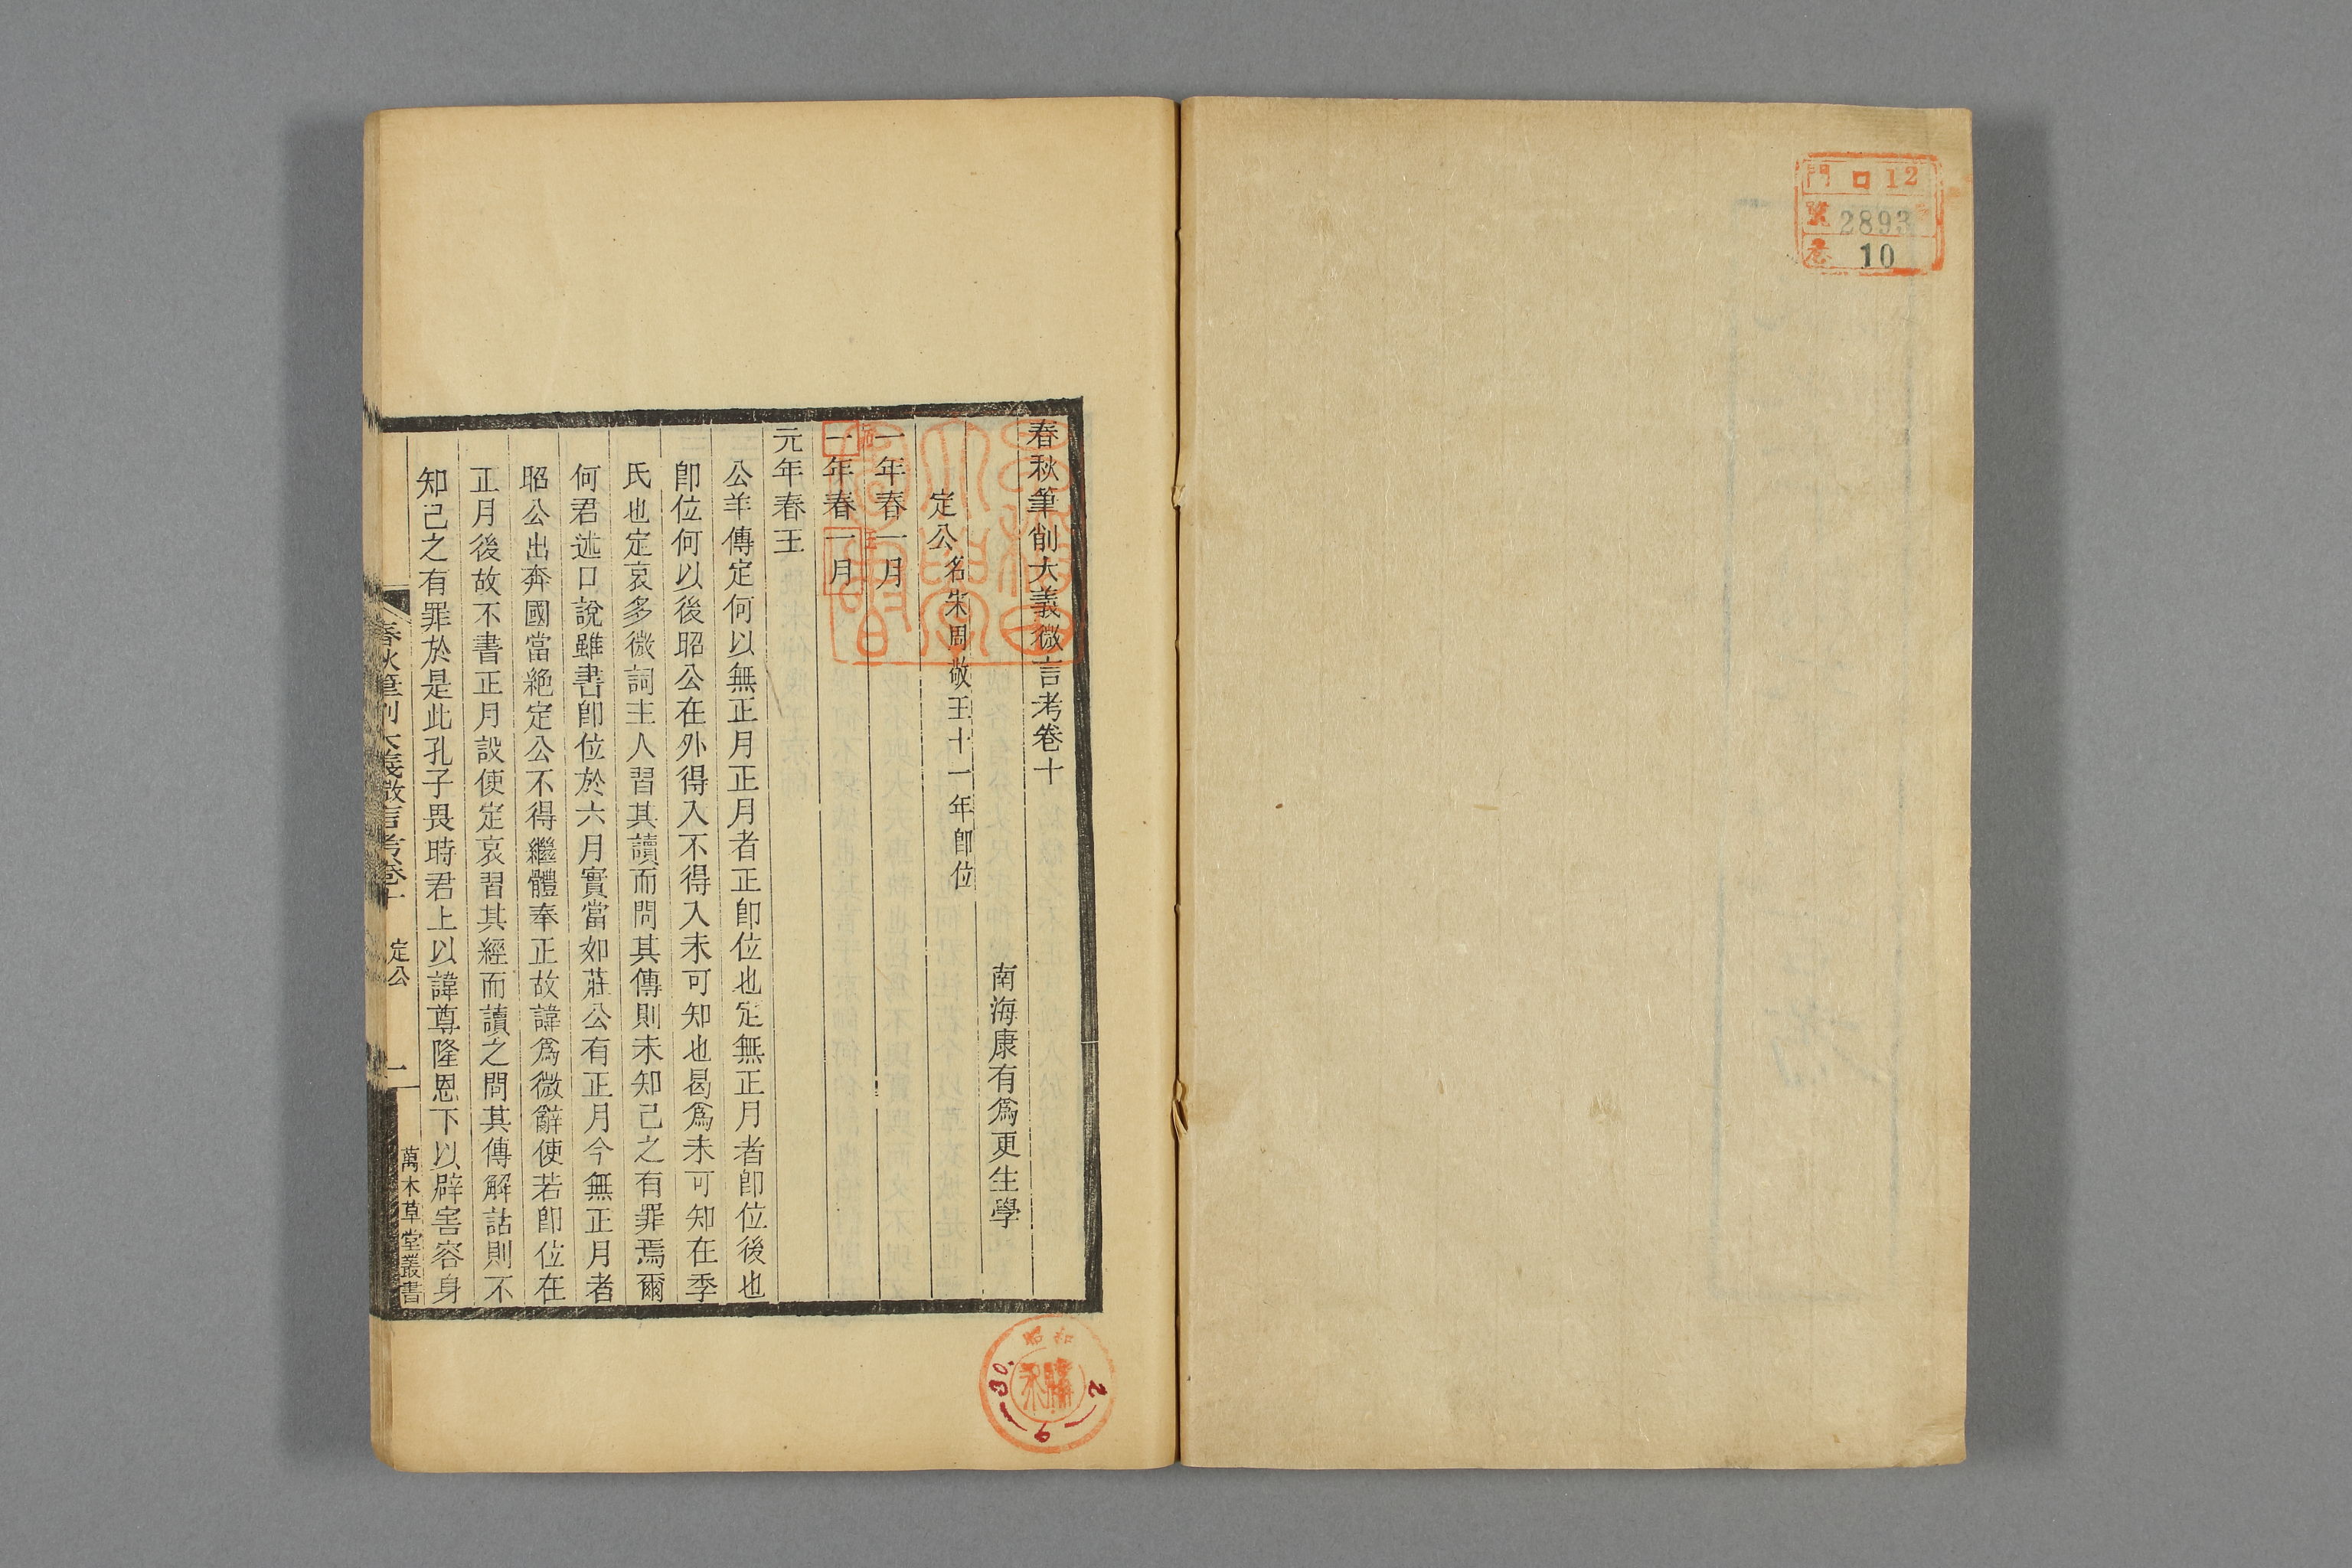 門 口 12
號 2893
卷 10
春秋筆削大義微言考卷十
南海康有爲更生學
定公 名宋周敬王十一年卽位
一年春一月
一年春一月
元年春王
公羊傳定何以無正月正月者正卽位也定無正月者卽位後也
卽位何以後昭公在外得入不得入未可知也曷爲未可知在季
氏也定哀多微詞主人習其讀而問其傳則未知己之有罪焉爾
何君述口說雖書卽位於六月實當如莊公有正月今無正月者
昭公出奔國當絶定公不得繼體奉正故諱爲微辭使若卽位在
正月後故不書正月設使定哀習其經而讀之問其傳解詁則不
知己之有罪於是此孔子畏時君上以諱尊隆恩下以辟害容身
春秋筆削大義微言考卷十 定公 一
萬木草堂叢書
昭和
購求
30.
9
2